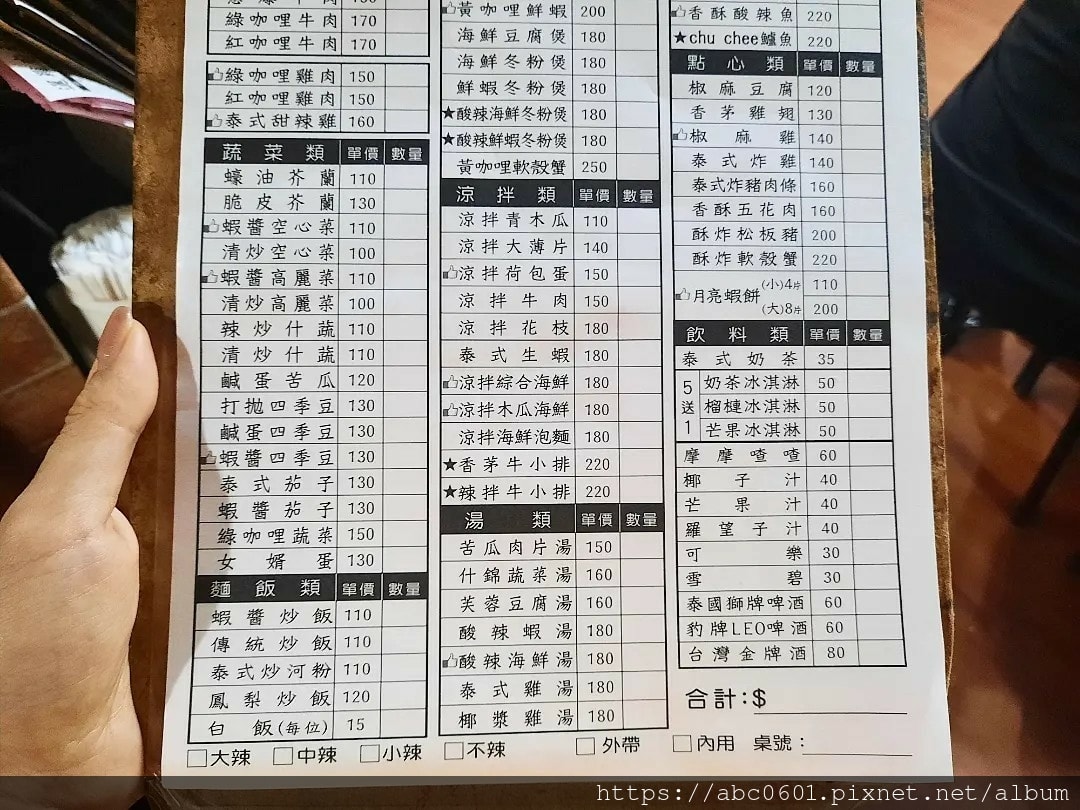 綠咖哩牛肉 170
紅咖哩牛肉 170
綠咖哩雞肉 150
紅咖哩雞肉 150
泰式甜辣雞 160
蔬菜類 單價 數量
蠔油芥蘭 110
脆皮芥蘭 130
蝦醬空心菜 110
清炒空心菜 100
蝦醬高麗菜 110
清炒高麗菜 100
辣炒什蔬 110
清炒什蔬 110
鹹蛋苦瓜 120
打拋四季豆 130
鹹蛋四季豆 130
蝦醬四季豆 130
泰式茄子 130
蝦醬茄子 130
綠咖哩蔬菜 150
女婿蛋 130
麵飯類 單價 數量
蝦醬炒飯 110
傳統炒飯 110
泰式炒河粉 110
鳳梨炒飯 120
白飯(每位) 15
黃咖哩鮮蝦 200
海鮮豆腐煲 180
海鮮冬粉煲 180
鮮蝦冬粉煲 180
★酸辣海鮮冬粉煲 180
★酸辣鮮蝦冬粉煲 180
黃咖哩軟殼蟹 250
涼拌類 單價 數量
涼拌青木瓜 110
涼拌大薄片 140
涼拌荷包蛋 150
涼拌牛肉 150
涼拌花枝 180
泰式生蝦 180
涼拌綜合海鮮 180
涼拌木瓜海鮮 180
涼拌海鮮泡麵 180
★香茅牛小排 220
★辣拌牛小排 220
湯類 單價 數量
苦瓜肉片湯 150
什錦蔬菜湯 160
芙蓉豆腐湯 160
酸辣蝦湯 180
酸辣海鮮湯 180
泰式雞湯 180
椰漿雞湯 180
香酥酸辣魚 220
★chu chee鱸魚 220
點心類 單價 數量
椒麻豆腐 120
香茅雞翅 130
椒麻雞 140
泰式炸雞 140
泰式炸豬肉條 160
香酥五花肉 160
酥炸松板豬 200
酥炸軟殼蟹 220
月亮蝦餅 (小)4片 110
(大)8片 200
飲料類 單價 數量
泰式奶茶 35
5送1
奶茶冰淇淋 50
榴槤冰淇淋 50
芒果冰淇淋 50
摩摩喳喳 60
椰子汁 40
芒果汁 40
羅望子汁 40
可樂 30
雪碧 30
泰國獅牌啤酒 60
豹牌LEO啤酒 60
台灣金牌酒 80
合計:$
□大辣 □中辣 □小辣 □不辣 □外帶 □內用 桌號:
https://abc0601.pixnet.net/album